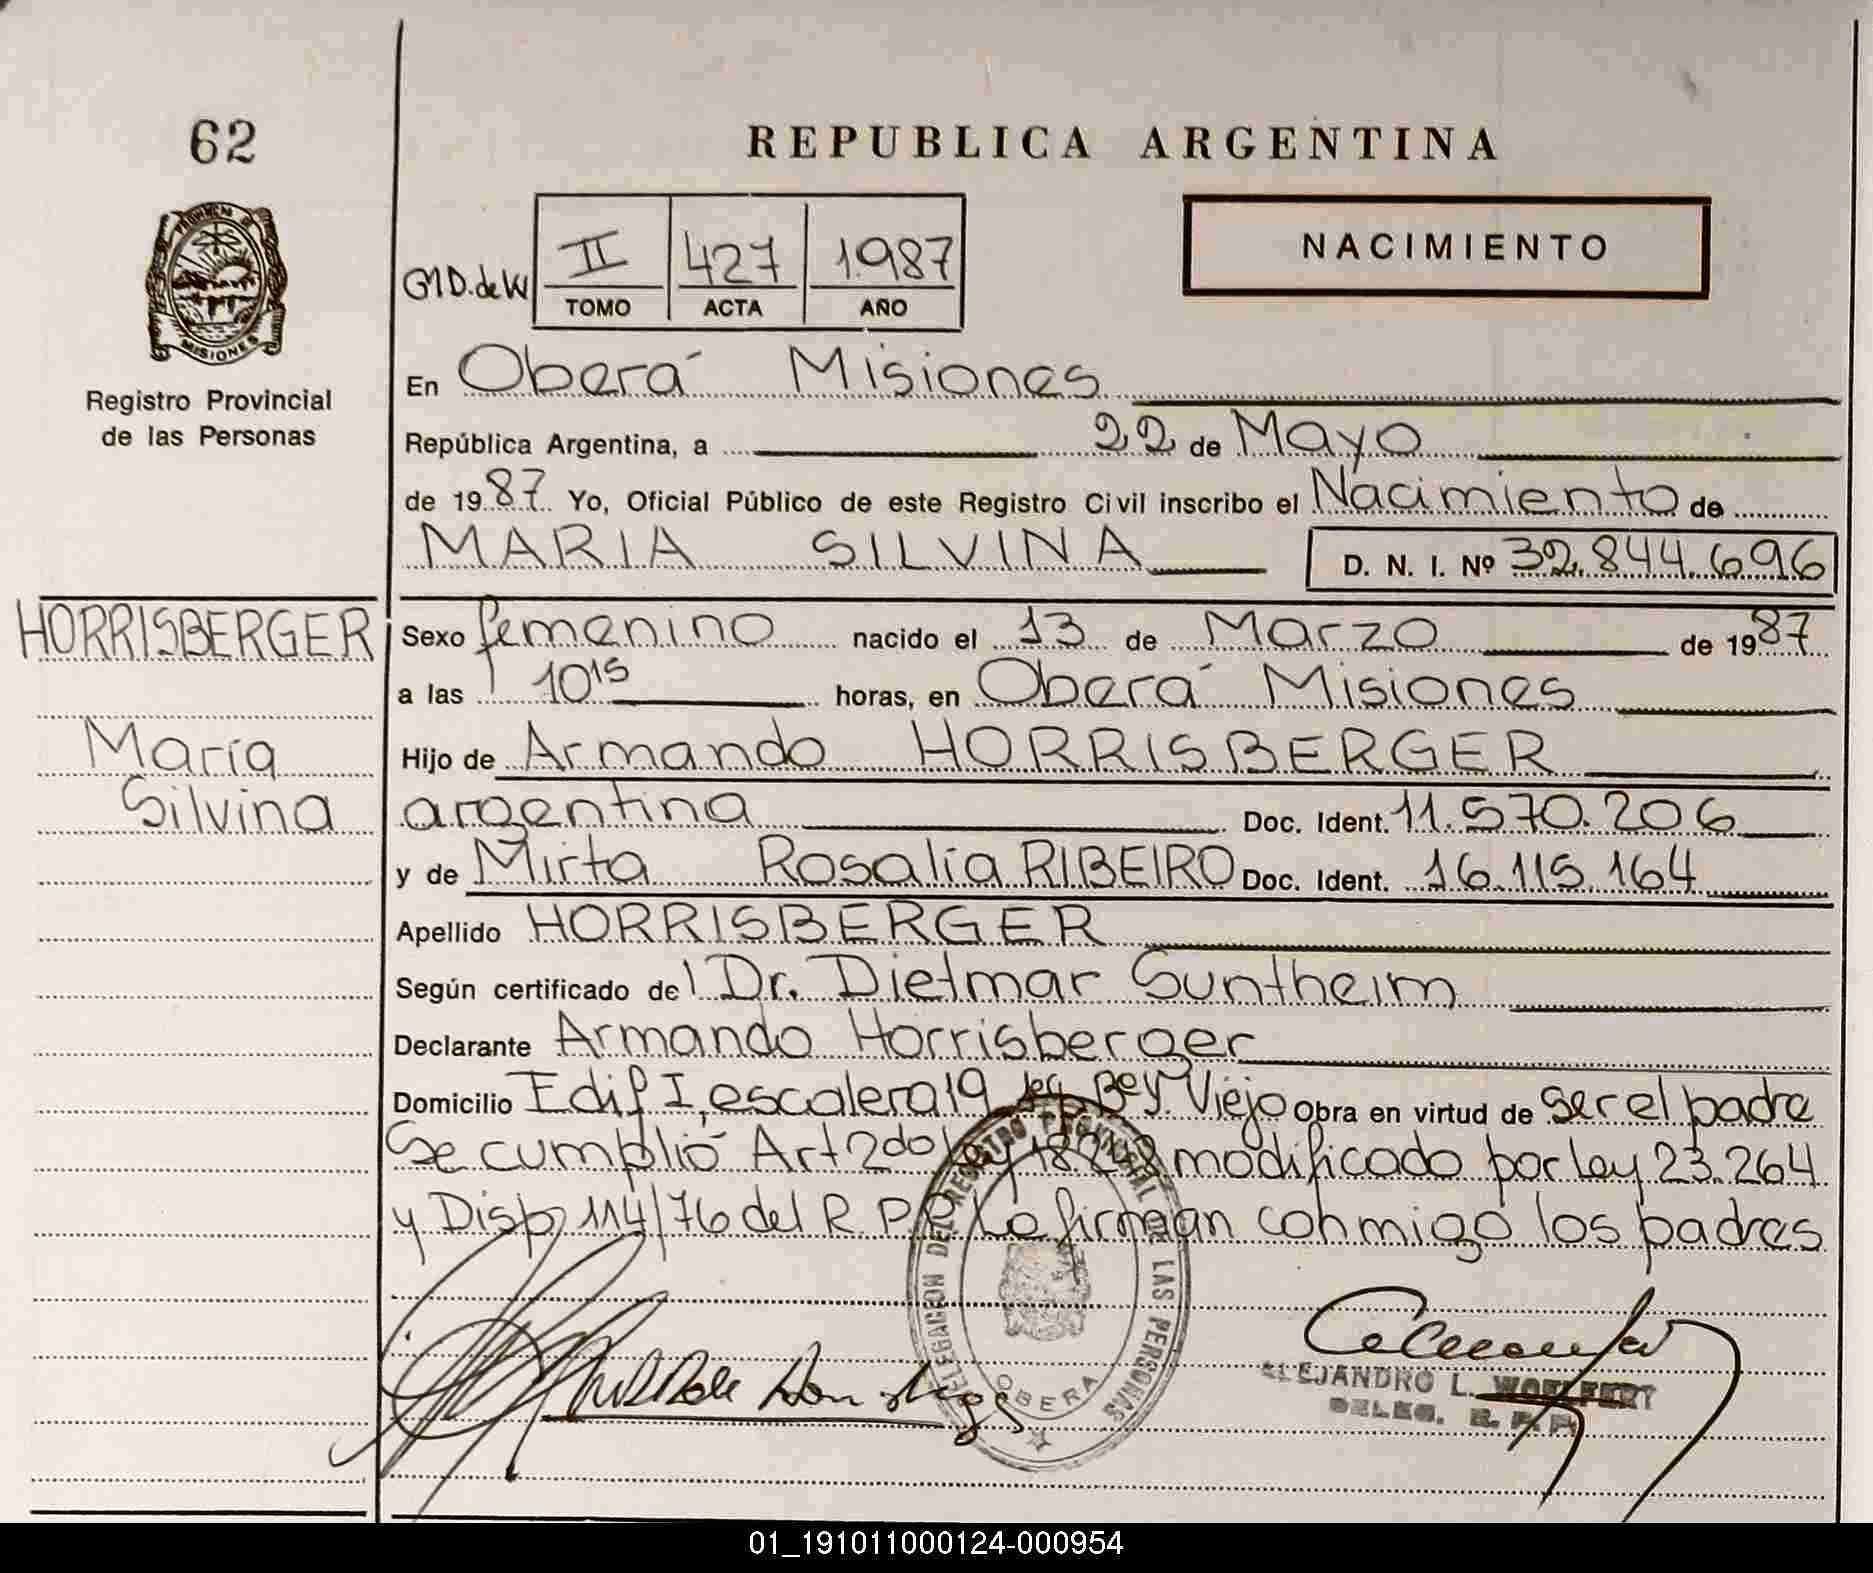 62
REPUBLICA ARGENTINA
PROVINCIA DE
MISIONES
Registro Provincial
de las Personas
II 427 1.987
TOMO ACTA AÑO
NACIMIENTO
En Oberá Misiones
República Argentina, a 22 de Mayo
de 1987. Yo, Oficial Público de este Registro Civil inscribo el Nacimiento de
MARIA SILVINA D. N. I. Nº 32.844.696
HORRISBERGER
María
Silvina
Sexo femenino nacido el 13 de Marzo de 1987
a las 10 15 horas, en Oberá Misiones
Hijo de Armando HORRISBERGER
argentina Doc. Ident. 11.570.206
y de Mirta Rosalía RIBEIRO Doc. Ident. 16.115.164
Apellido HORRISBERGER
Según certificado del Dr. Dietmar Suntheim
Declarante Armando Horrisberger
Domicilio Edif I, escalera 19 Viejo Obra en virtud de ser el padre
Se cumplió Art 2do modificado por ley 23.264
y Disp 114/76 del R.P.P. Lo firman conmigo los padres
DELEGACION DEL REGISTRO PROVINCIAL DE LAS PERSONAS
OBERA
ALEJANDRO L. WOELFERT
DELEG. R. P. P.
01_191011000124-000954